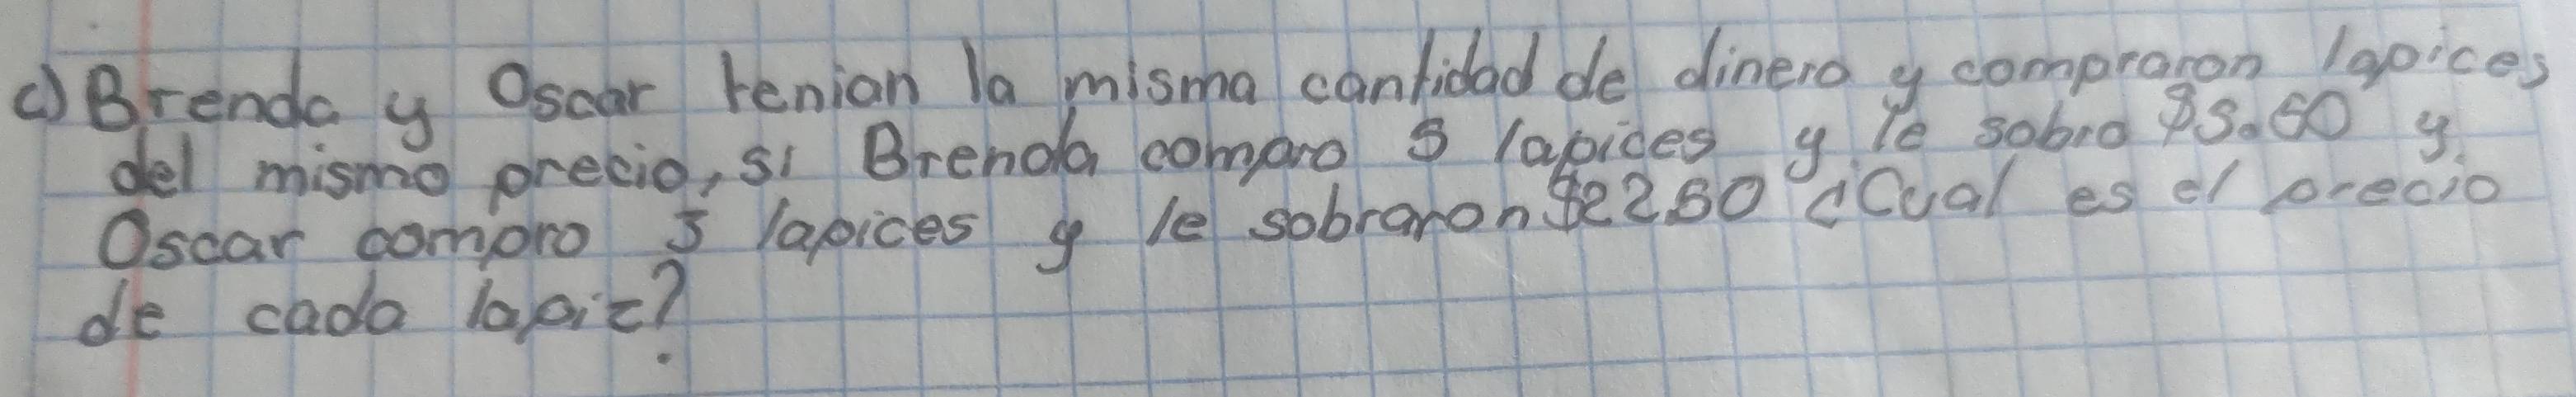 c) Brenda y Oscar tenian la misma cantidad de dinero y compraron lapices
del mismo precio, si Brenda compro 5 lapices y le sobro $3.50 y
Oscar compro 3 lapices y le sobraron $22.50 ¿Cual es el precio
de cada lapiz?